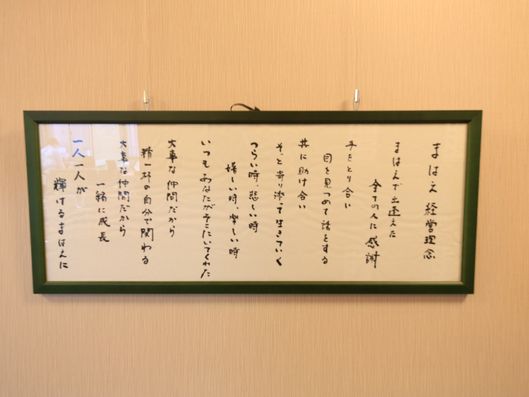 まはえ 経営理念
まはえで出逢えた
全ての人に感謝
手をとり合い
目を見つめて話をする
共に助け合い
そっと寄り添って生きていく
つらい時、悲しい時
嬉しい時、楽しい時
いつもあなたがそこにいてくれた
大事な仲間だから
精一杯の自分で関わる
大事な仲間だから
一緒に成長
一人一人が
輝けるまはえに